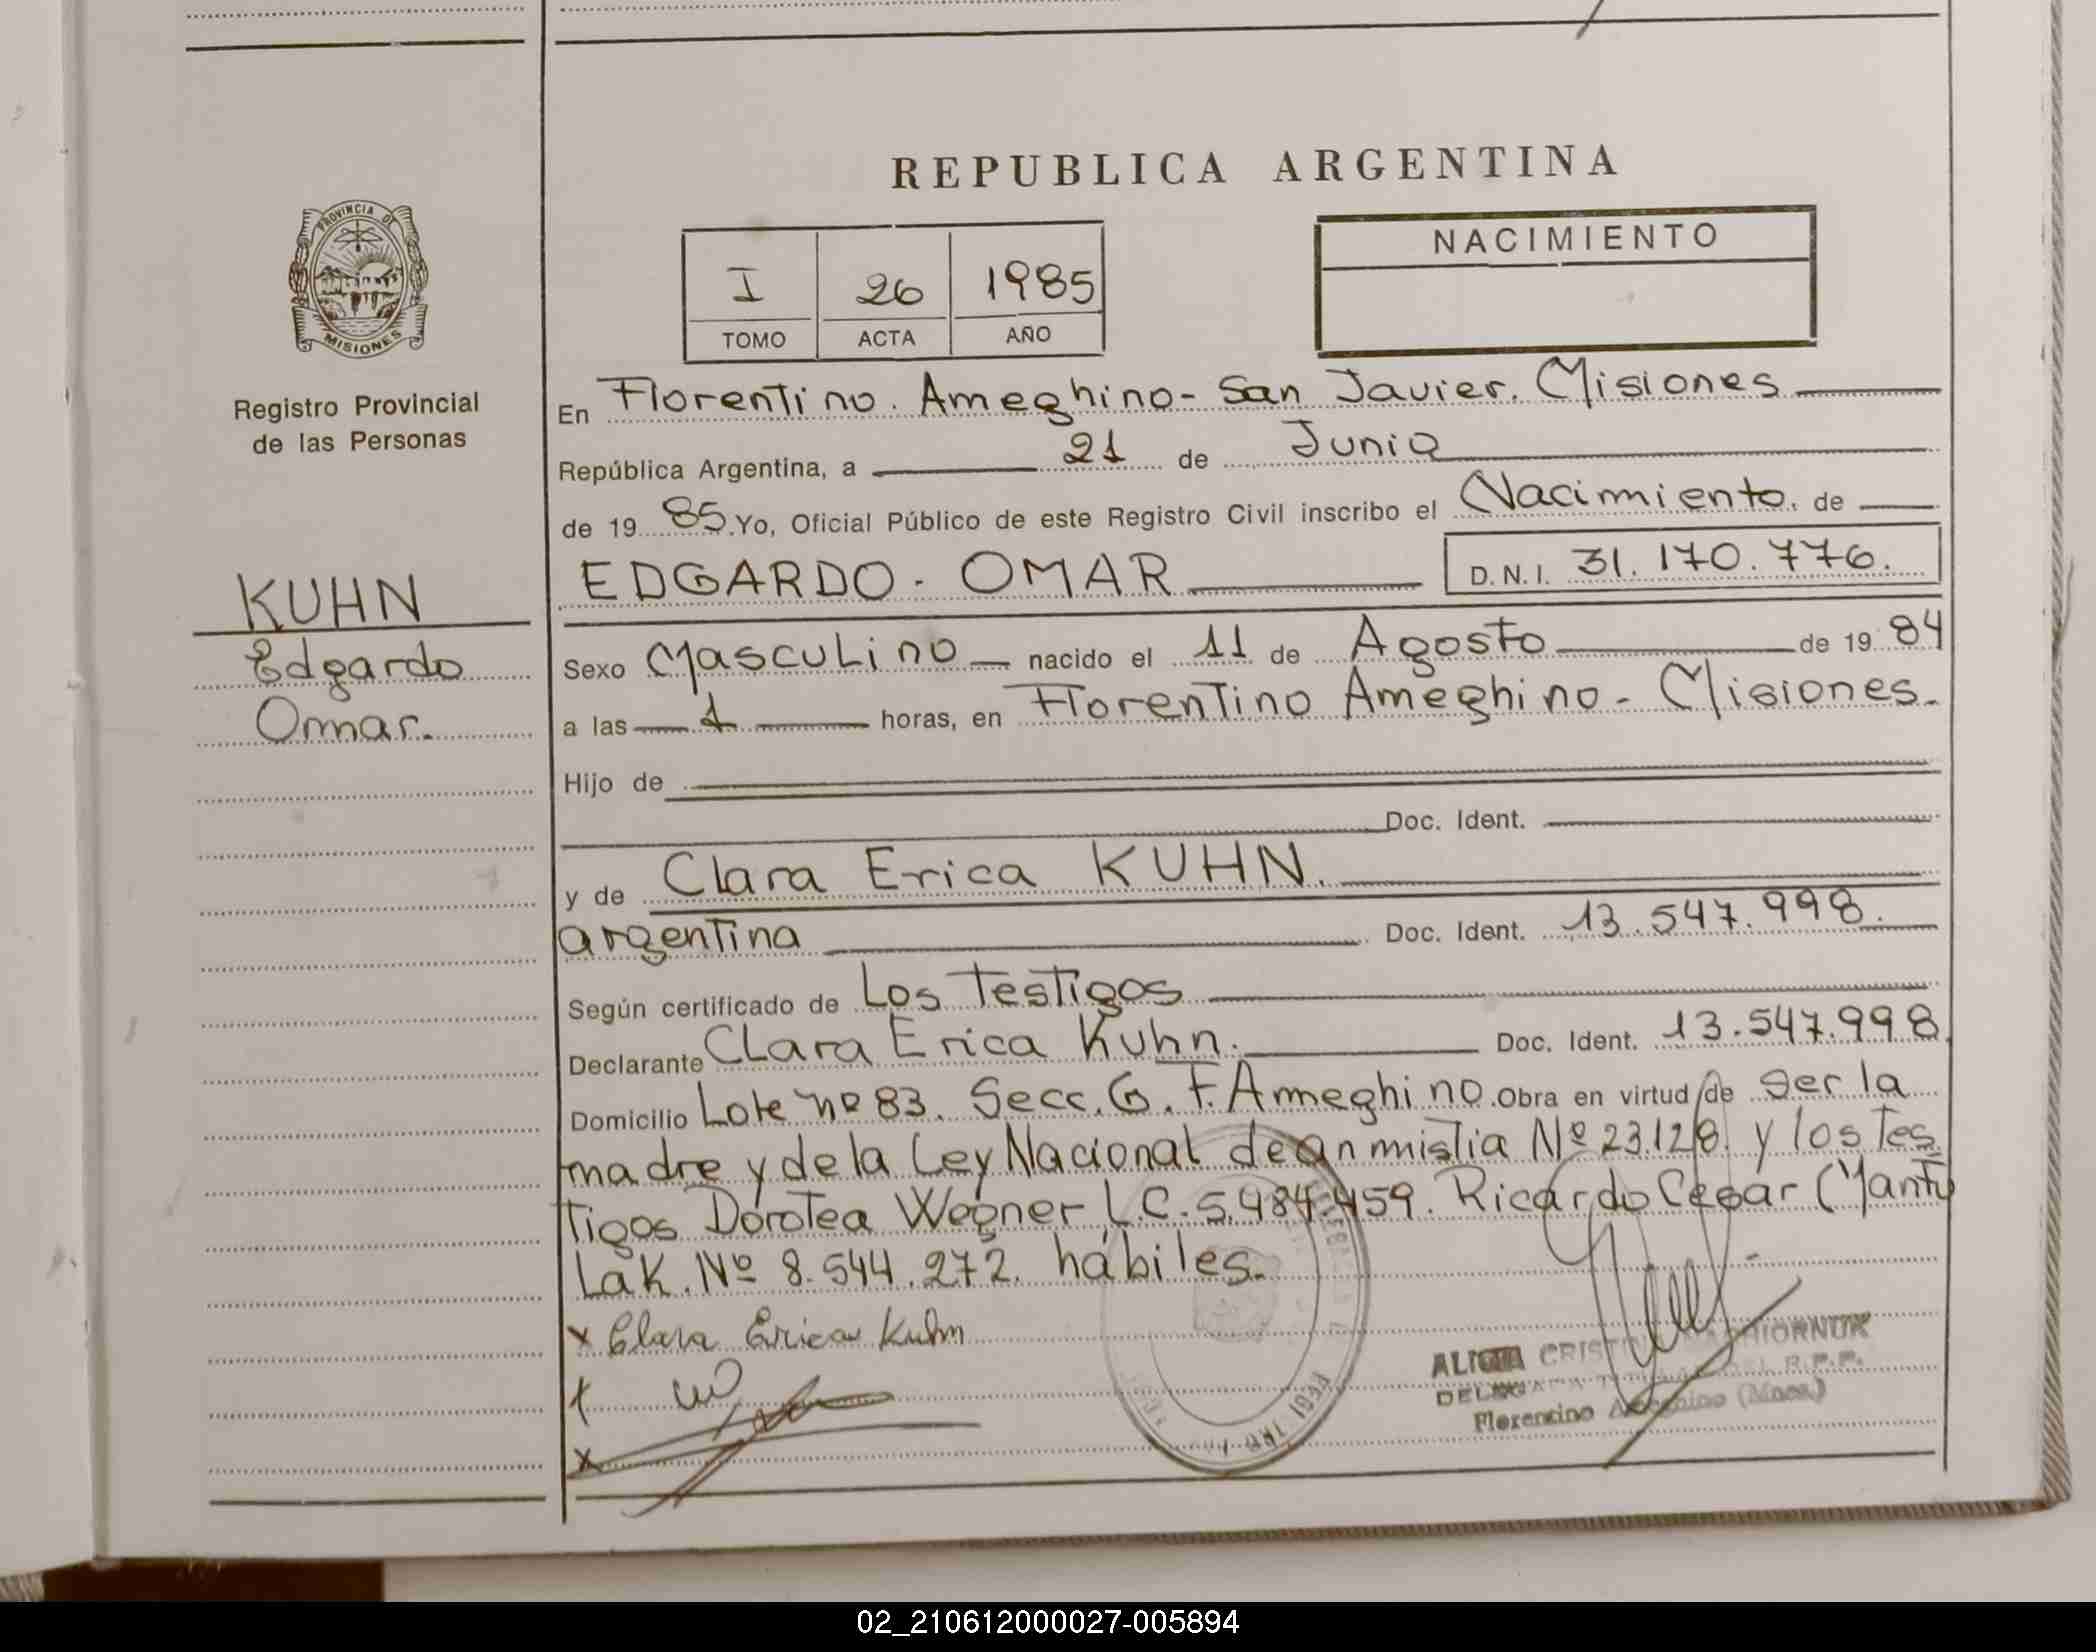 REPUBLICA ARGENTINA
PROVINCIA DE
MISIONES
Registro Provincial
de las Personas
I 26 1985
TOMO ACTA AÑO
NACIMIENTO
KUHN
Edgardo
Omar.
En Florentino. Ameghino - San Javier. Misiones
República Argentina, a 21 de Junio
de 19 85 Yo, Oficial Público de este Registro Civil inscribo el Nacimiento. de
EDGARDO - OMAR D.N.I. 31.170.776.
Sexo Masculino nacido el 11 de Agosto de 19 84
a las 1 horas, en Florentino Ameghino - Misiones.
Hijo de
Doc. Ident.
y de Clara Erica KUHN.
argentina Doc. Ident. 13.547.998.
Según certificado de Los Testigos
Declarante Clara Erica Kuhn. Doc. Ident. 13.547.998
Domicilio Lote nº 83. Secc. G. F. Ameghino. Obra en virtud de ser la
madre y de la Ley Nacional de anmistia Nº 23.128. y los Tes
Tigos Dorotea Wegner L.C. 5.484.459. Ricardo Cesar Manty
Lak. Nº 8.544.272. hábiles.
x Clara Erica Kuhn
x
x
ALICIA
Florentino Ameghino (Mnes.)
02_210612000027-005894